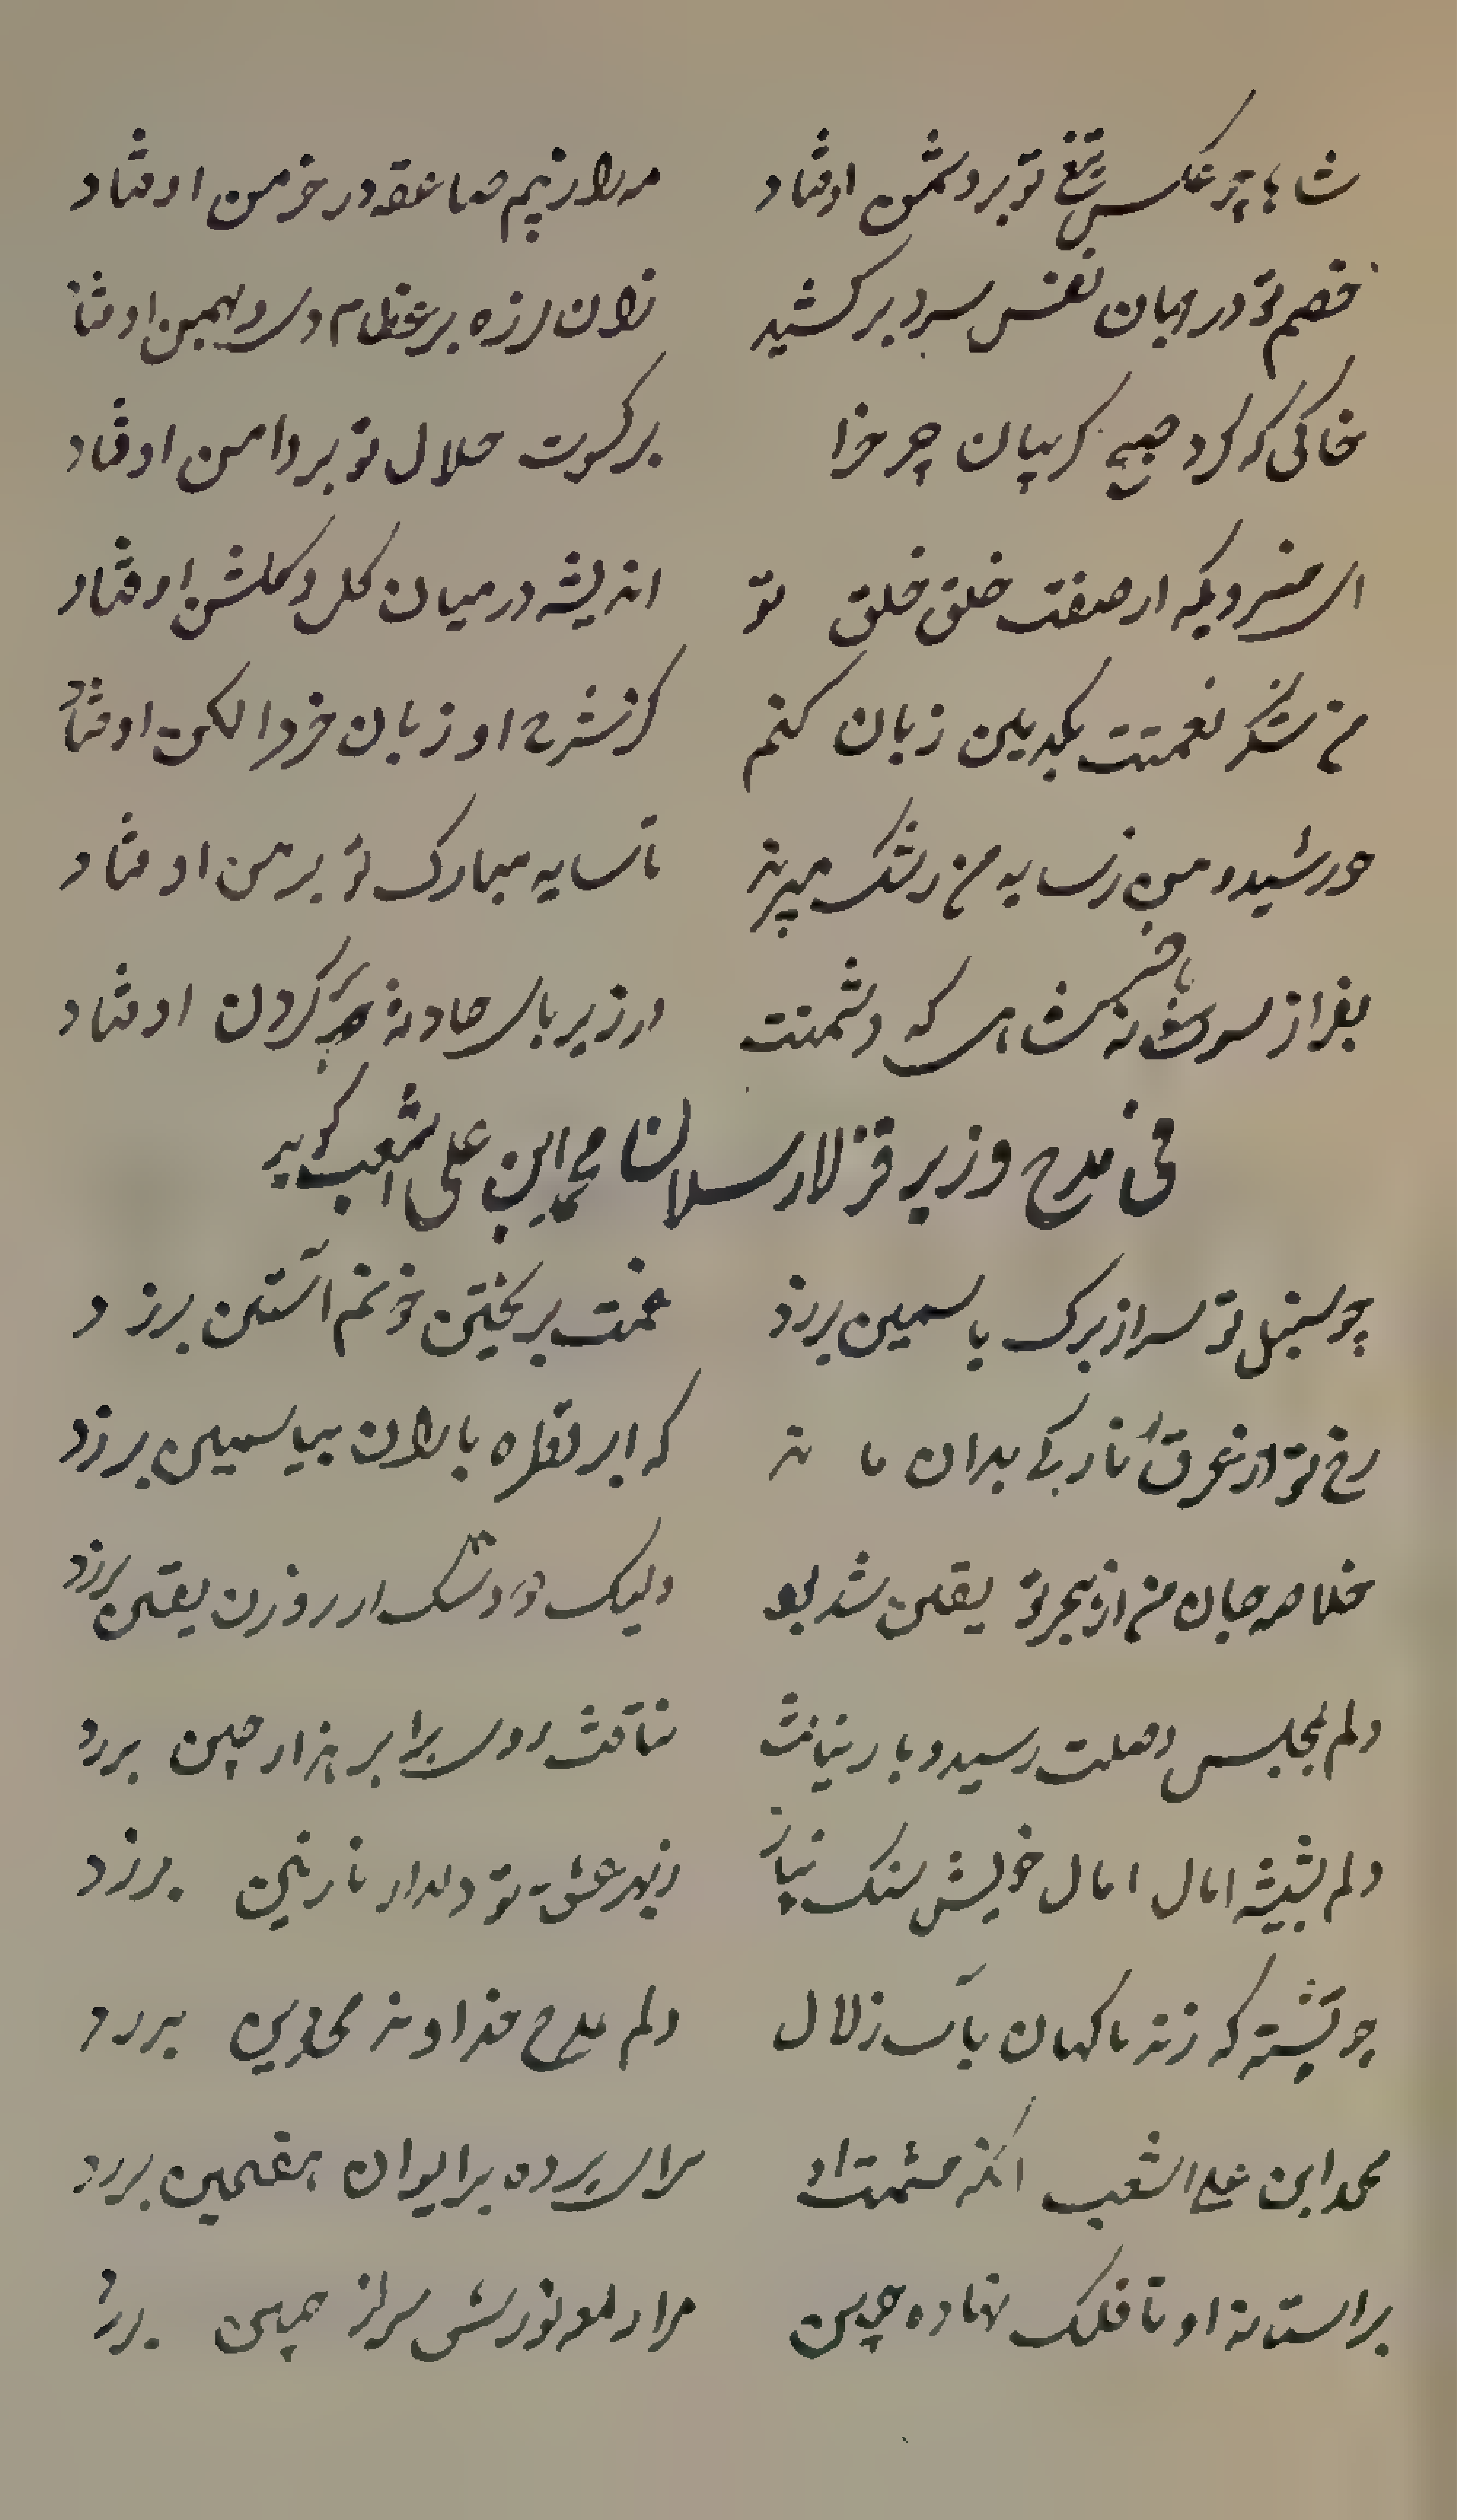 شاها چو عکس تیغ تو بر دشمن اوفتاد مه را ز بیم صاعقه در خرمن اوفتاد
خصم تو در میان نفس سرد برکشید زان لرزه بر عظام دی و بهمن اوفتاد
خاکی که کرد صبح کریبان چرخ را بر کسوت جلال تو بر دامن اوفتاد
ای خسرویکه از صفت خلق خلق تو اندیشه در میان کل و کلشن اوفتاد
من شکر نعمتت بکدمین زبان کنم کز شرح او زبان خرد الکن اوفتاد
خورشید و مه ز سایه من رشک میبرند تا سایه مبارک تو بر من اوفتاد
بفراز سر که دشمنت در زیر بار حادثه کردن اوفتاد
فی مدح وزیر قزل ارسلان محمد ابن علی اشعب کوید
چو سنبل تو سر از برک یاسمین برزد غمت بریختن خونم آستین برزد
رخ تو از عرق بدان ماند که ابر قطره باران بیاسمین برزد
خلاص جان من از هجر تو یقین شد بود ولیک دزد شک از روزن یقین برزد
دلم بمجلس وصلت رسید و بار نیافت شتافت روی برابر هزار چین برزد
دلم بشیشه امال امال خویش سنک نیاز ز بهر عشق تو دلدار نازنین برزد
چو تشنه که زند ناکهان بآب زلال دلم بمدح خداوند محمدین برزد
محمد ابن علی اشعب آنکه حشمت او سراپرده بر ایوان هفتمین برزد
بر آستانه او تا فلک نهاده جبین هزار لمعه نورش سر از جبین برزد